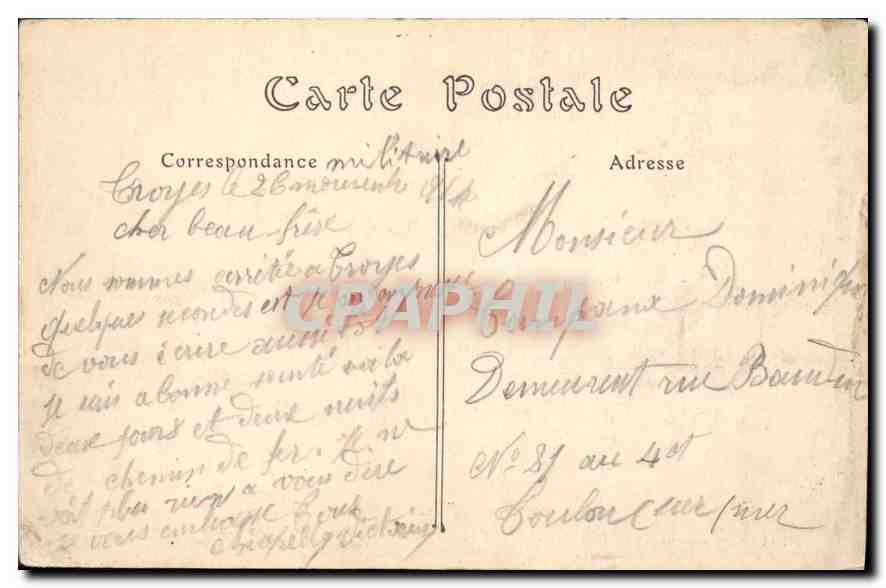 Carte Postale
Correspondance militaire
Troyes le 26
cher beau frère
Nous sommes arretté a Troyes
quelques secondes et je
de vous écrire aussi
je suis a bonne santé voila
deux jours et deux nuits
de chemin de fer.
plus rien a vous dire
je vous embrasse tous
CPAPHIL
Adresse
Monsieur
Dominique
Demeurent rue Baudin
No 81 au 4et
Toulon sur mer